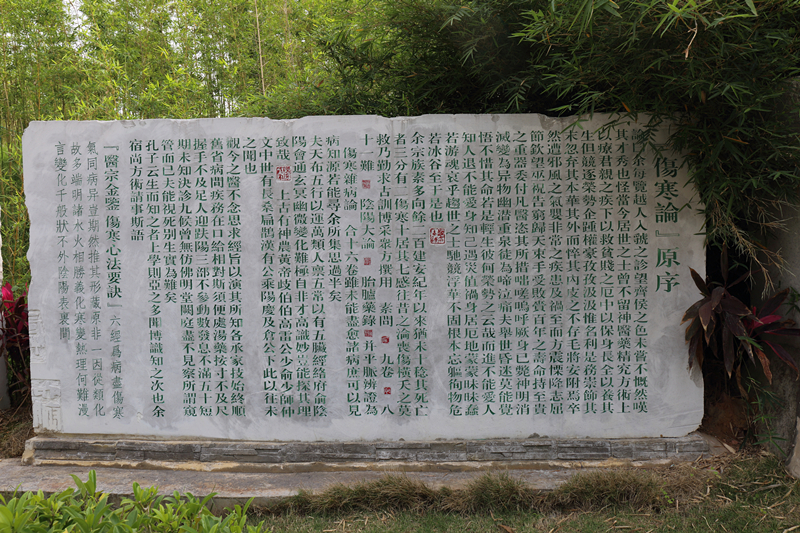 『傷寒論』原序
論曰余每覽越人入虢之診望齊侯之色未嘗不慨然嘆
其才秀也怪當今居世之士曾不留神醫藥精究方術上
以療君親之疾下以救貧賤之厄中以保身長全以養其
生但競逐榮勢企踵權豪孜孜汲汲惟名利是務崇飾其
末忽弃其本華其外而悴其內皮之不存毛將安附焉卒
然遭邪風之氣嬰非常之疾患及禍至而方震慄降志屈
節欽望巫祝告窮歸天束手受敗賫百年之壽命持至貴
之重器委付凡醫恣其所措咄嗟嗚呼厥身已斃神明消
滅變為異物幽潛重泉徒為啼泣痛夫舉世昏迷莫能覺
悟不惜其命若是輕生彼何榮勢之云哉而進不能愛人
知人退不能愛身知己遇災值禍身居厄地蒙蒙昧昧惷
若游魂哀乎趨世之士馳競浮華不固根本忘軀徇物危
若冰谷至于是也
余宗族素多向餘二百建安紀年以來猶未十稔其死亡
者三分有二傷寒十居其七感往昔之淪喪傷橫夭之莫
救乃勤求古訓博采眾方撰用 素問 九卷 八
十一難 陰陽大論 胎臚藥錄 并平脈辨證為
傷寒雜病論 合十六卷雖未能盡愈諸病庶可以見
病知源若能尋余所集思過半矣
夫天布五行以運萬類人稟五常以有五臟經絡府俞陰
陽會通玄冥幽微變化難極自非才高識妙豈能探其理
致哉 上古有神農黃帝岐伯伯高雷公少俞少師仲
文中世有長桑扁鵲漢有公乘陽慶及倉公下此以往未
之聞也
觀今之醫不念思求經旨以演其所知各承家技始終順
舊省病問疾務在口給相對斯須便處湯藥按寸不及尺
握手不及足人迎趺陽三部不參動數發息不滿五十短
期未知決診九候曾無仿佛明堂闕庭盡不見察所謂窺
管而已夫能視死別生實為難矣
孔子云生而知之者上學則亞之多聞博識知之次也余
宿尚方術請事斯語
『醫宗金鑒 傷寒心法要訣』 六經為病盡傷寒
氣同病异豈期然推其形藏原非一因從類化
故多端明諸水火相勝義化寒變熱理何難漫
言變化千般狀不外陰陽表裏間